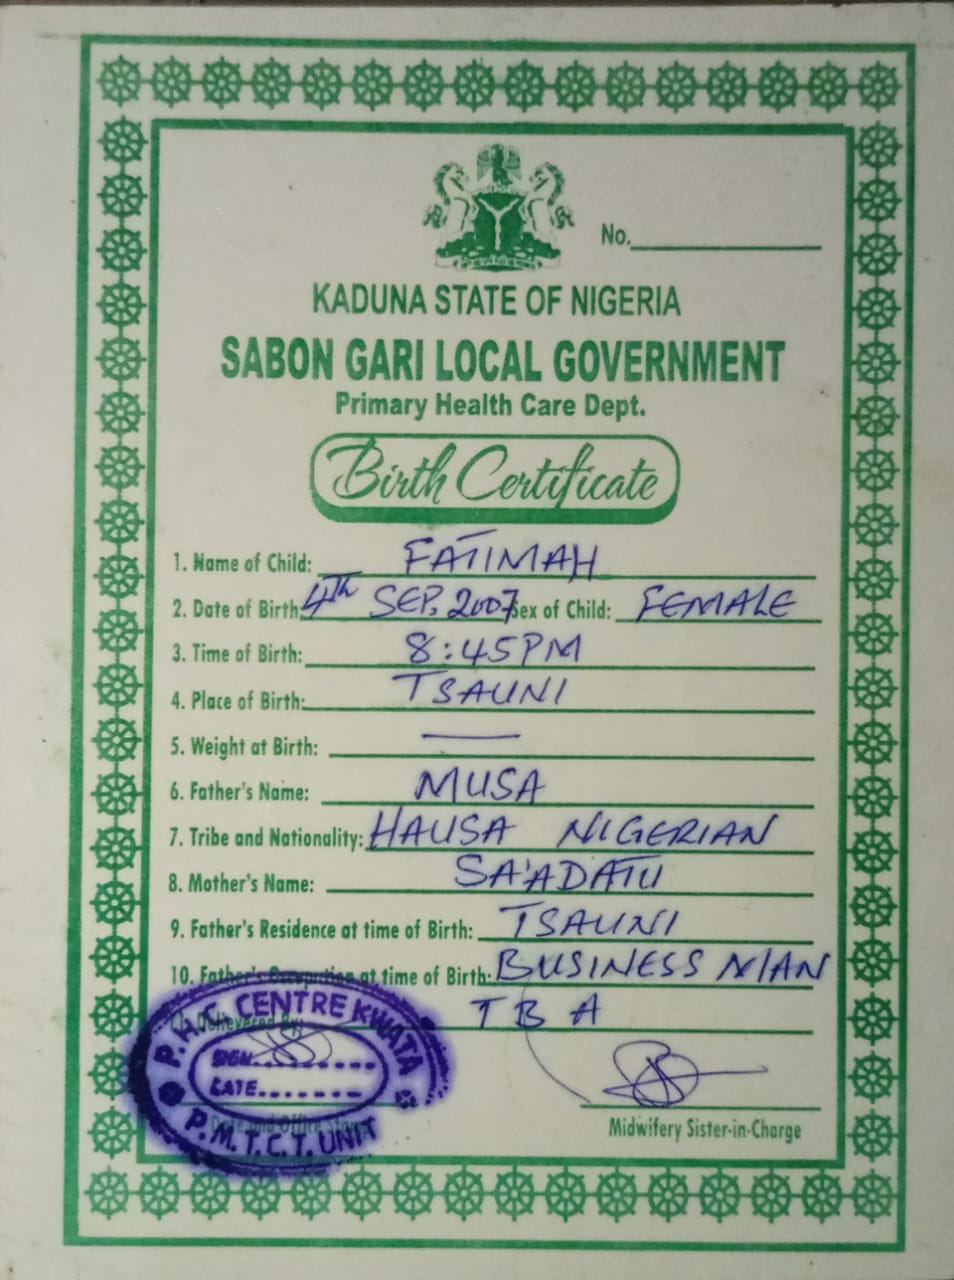 No.
KADUNA STATE OF NIGERIA
SABON GARI LOCAL GOVERNMENT
Primary Health Care Dept.
Birth Certificate
1. Name of Child: FATIMAH
2. Date of Birth: 4TH SEP. 2007 Sex of Child: FEMALE
3. Time of Birth: 8:45PM
4. Place of Birth: TSAUNI
5. Weight at Birth: —
6. Father's Name: MUSA
7. Tribe and Nationality: HAUSA NIGERIAN
8. Mother's Name: SA'ADATU
9. Father's Residence at time of Birth: TSAUNI
10. Father's Occupation at time of Birth: BUSINESS MAN
TBA
P.H.C. CENTRE KWATA
SIGN
DATE
P.M.T.C.T. UNIT
Midwifery Sister-in-Charge